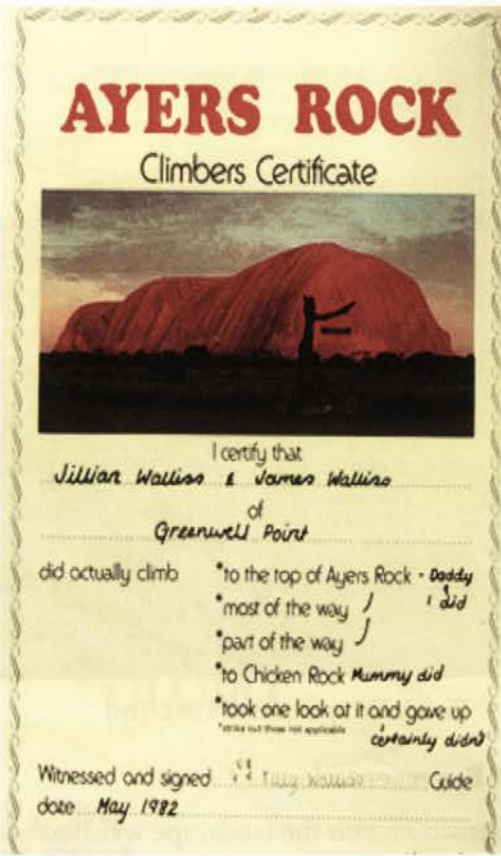 AYERS ROCK
Climbers Certificate
I certify that
Jillian Walliss & James Walliss
of
Greenwell Point
did actually climb *to the top of Ayers Rock - Daddy
*most of the way & I did
*part of the way
*to Chicken Rock Mummy did
*took one look at it and gave up
*strike out those not applicable certainly didn't
Witnessed and signed Guide
date May 1982